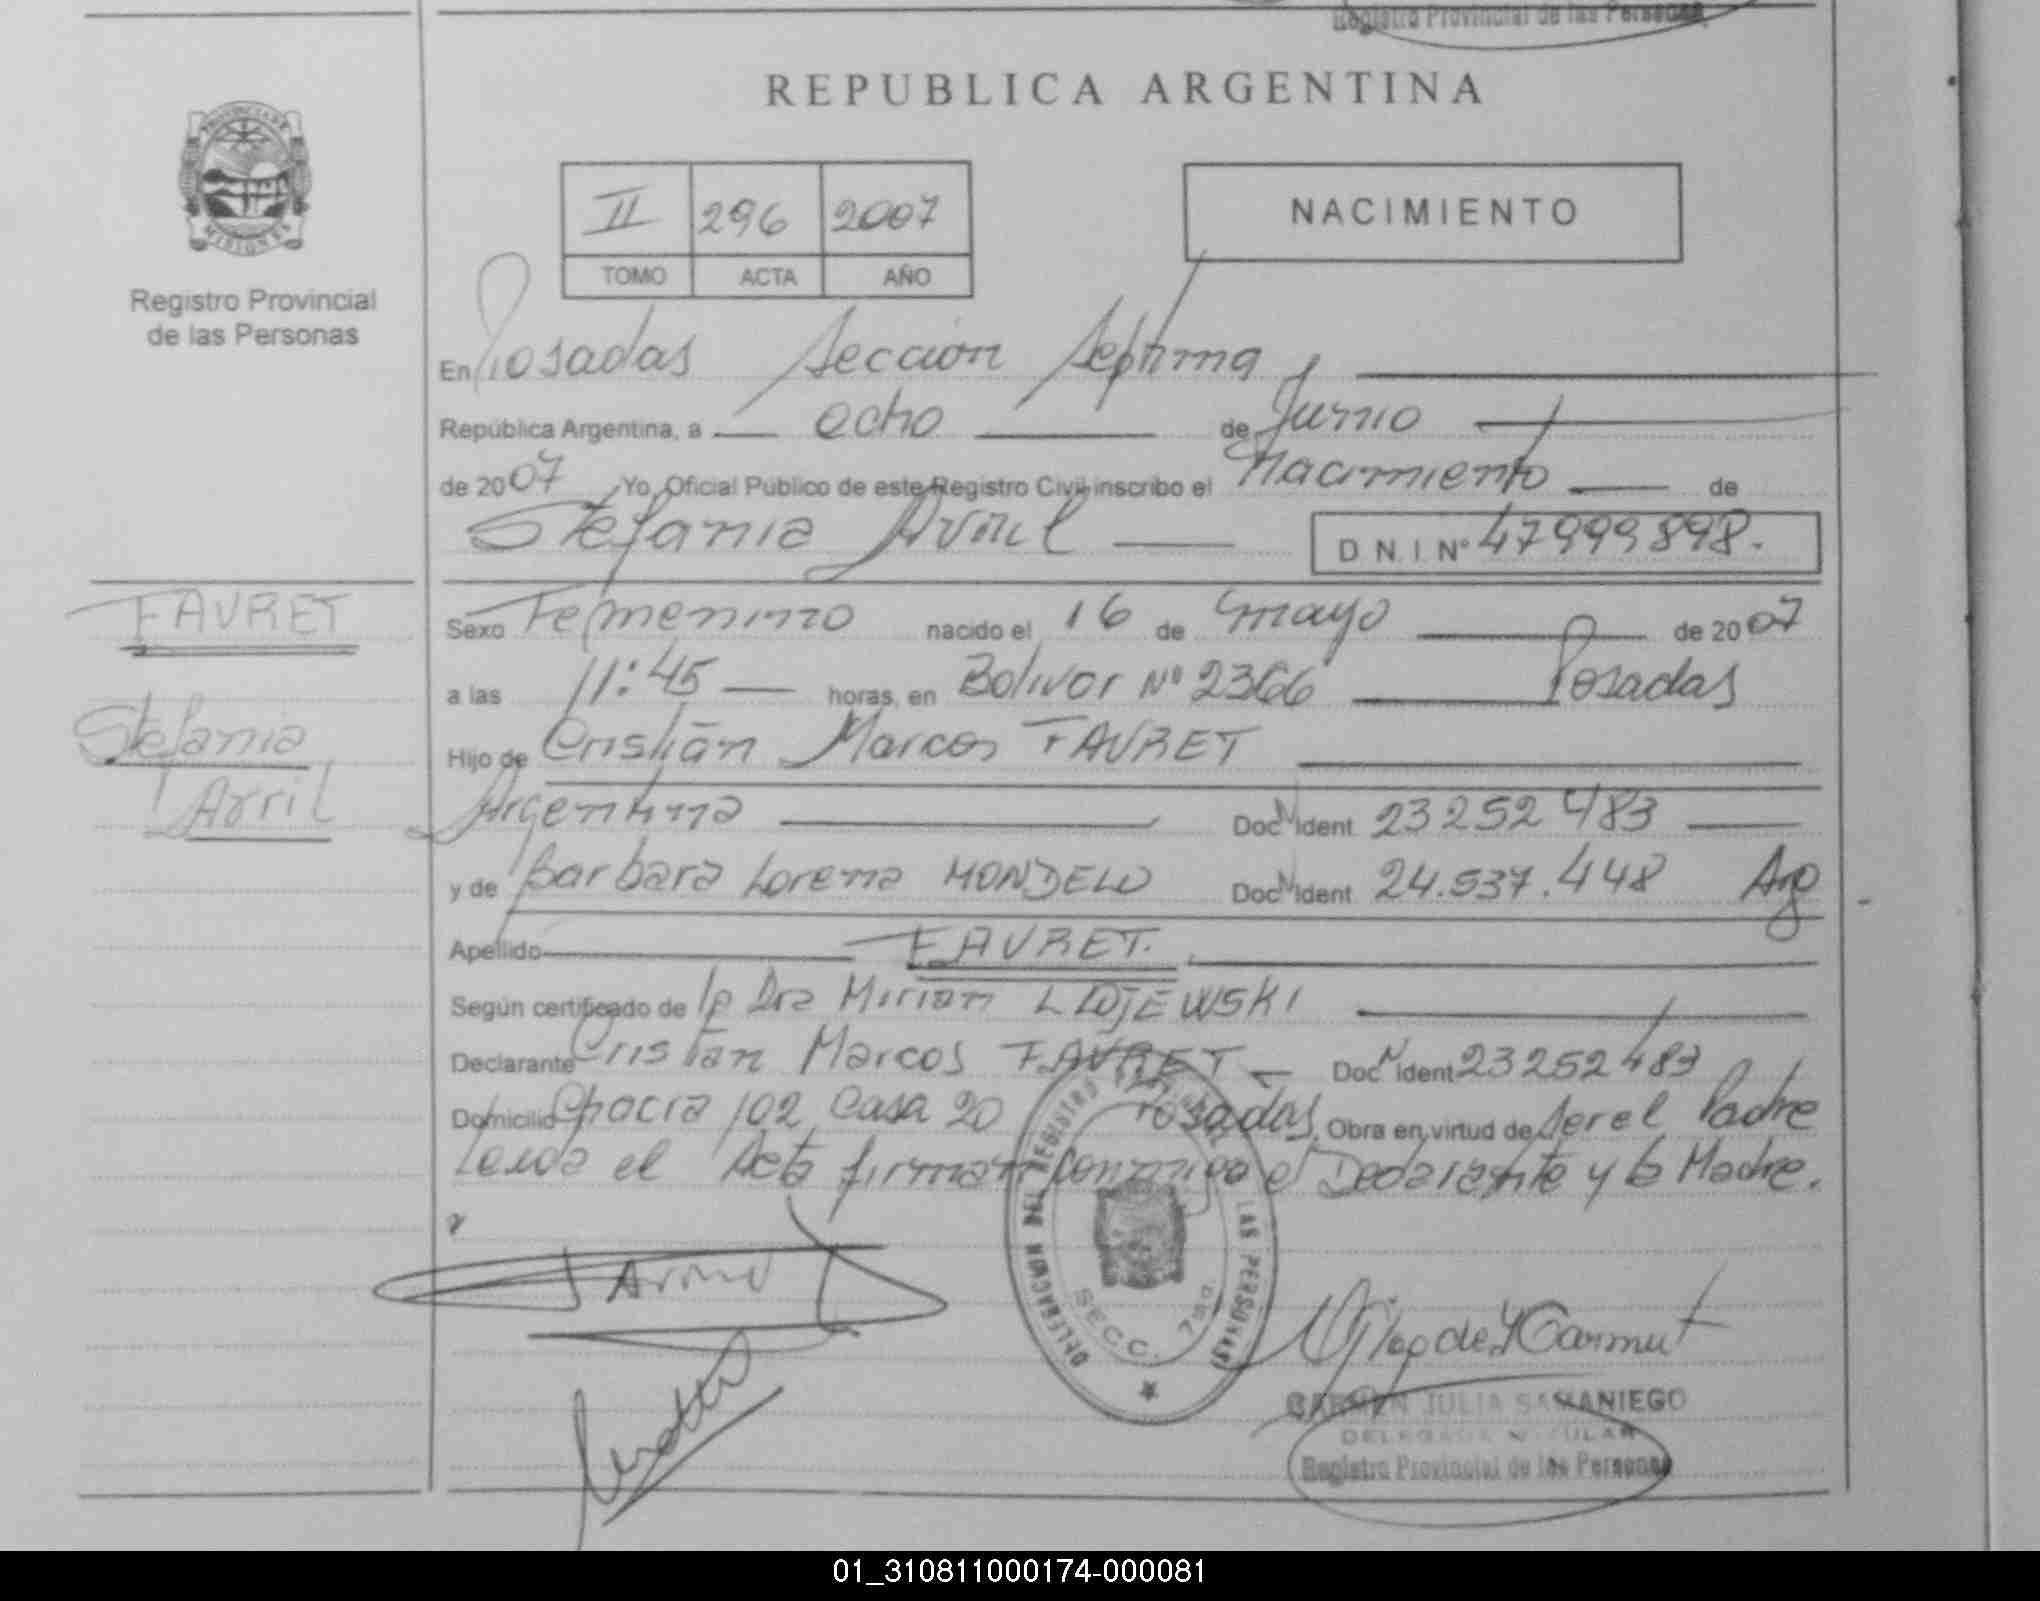 Registro Provincial de las Personas
REPUBLICA ARGENTINA
PROVINCIA DE
MISIONES
Registro Provincial
de las Personas
II 296 2007
TOMO ACTA AÑO
NACIMIENTO
En Posadas Sección Septima
República Argentina, a ocho de Junio
de 2007 Yo, Oficial Público de este Registro Civil inscribo el Nacimiento de
Stefania Avril D N. I. Nº 47999898.
FAVRET
Stefania
Avril
Sexo Femenino nacido el 16 de mayo de 2007
a las 11:45 horas, en Bolivar Nº 2366 Posadas
Hijo de Cristián Marcos FAVRET
Argentina Doc N Ident 23252483
y de Barbara Lorena MONDELO Doc N Ident 24.537.448 Arg
Apellido FAVRET.
Según certificado de la Dra Mirian
Declarante Cristian Marcos FAVRET Doc N Ident 23252483
Domicilio Chacra 102 Casa 20 Posadas. Obra en virtud de ser el Padre
Leida el Acta firman conmigo el Declarante y la Madre.
DELEGACION DEL REGISTRO PROVINCIAL DE LAS PERSONAS
SECC. 7ma.
CARMEN JULIA SAMANIEGO
DELEGADA TITULAR
Registro Provincial de las Personas
01_310811000174-000081